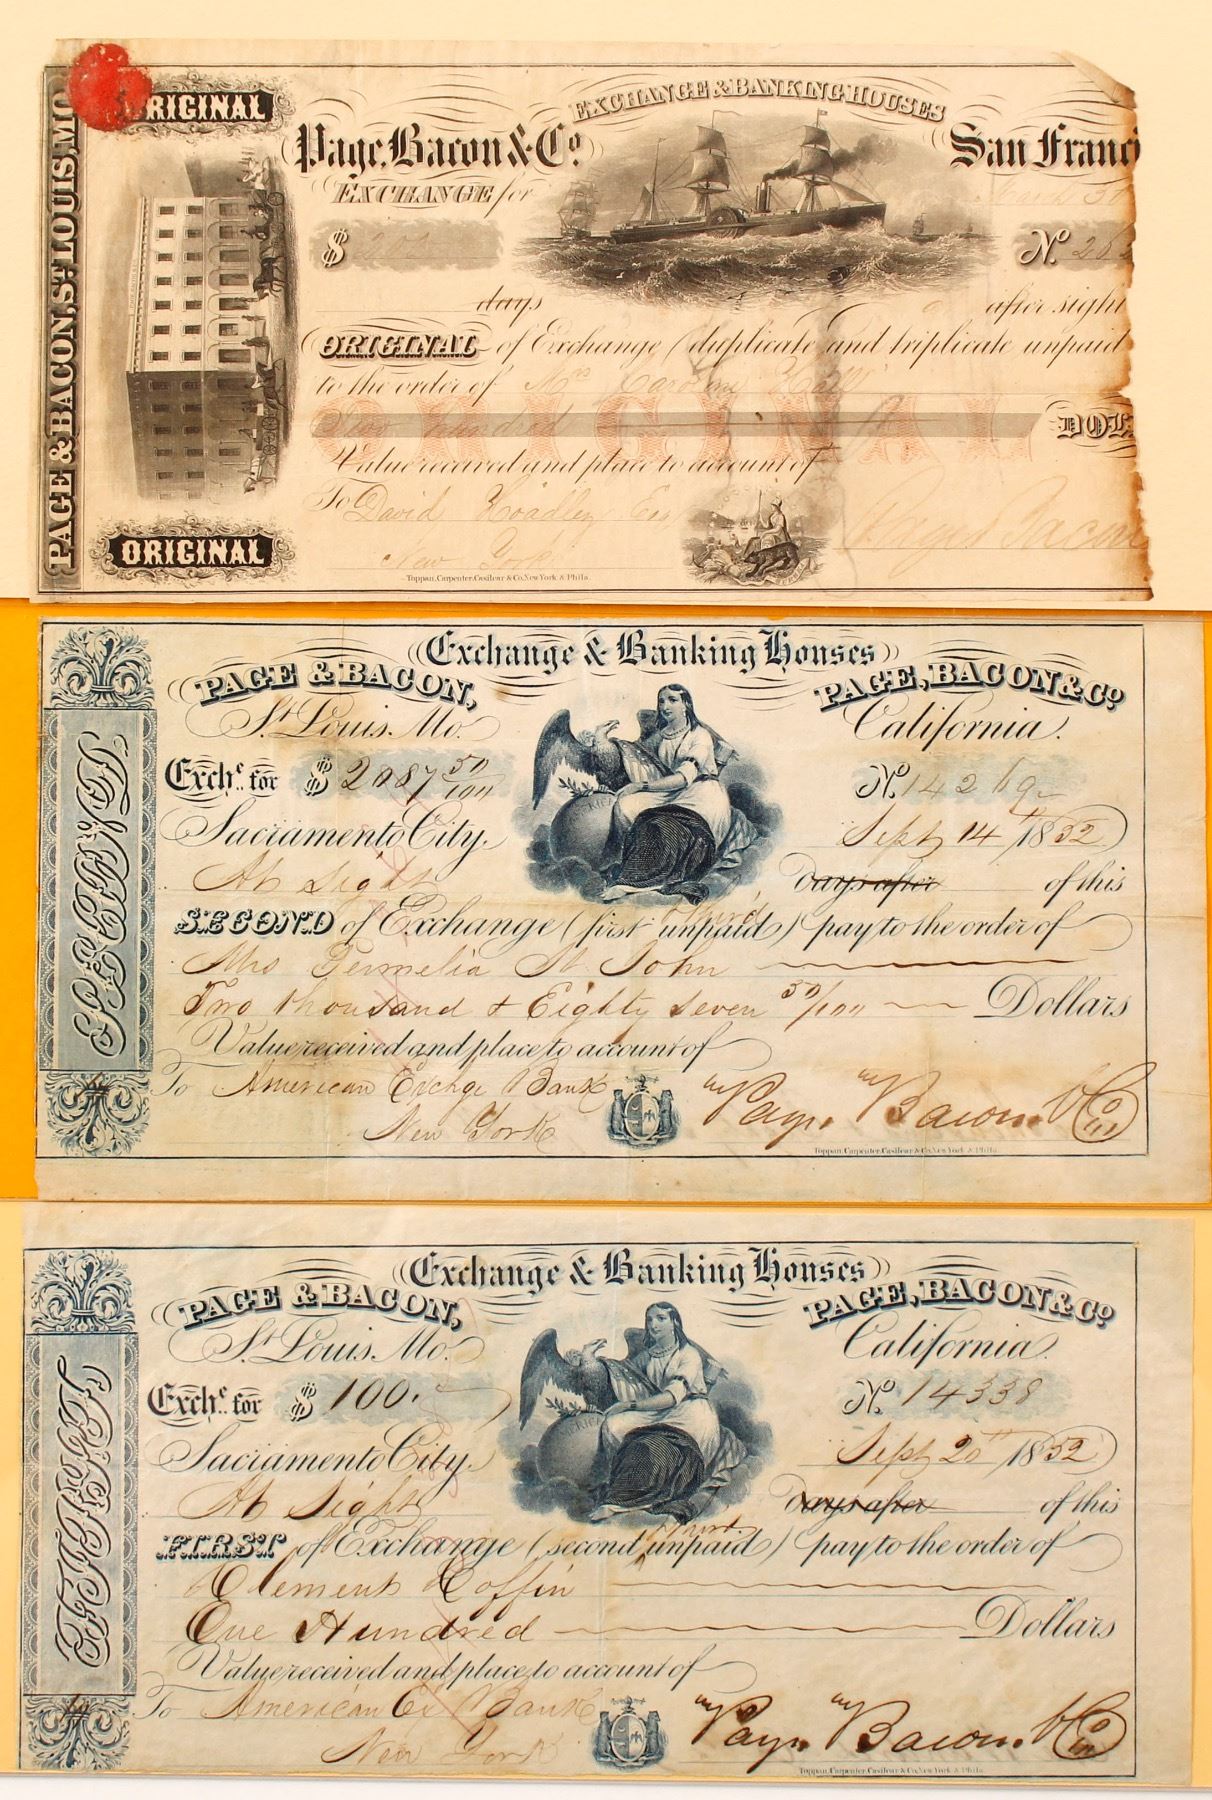 PAGE & BACON, ST. LOUIS, MO
ORIGINAL
EXCHANGE & BANKING HOUSES
Page, Bacon & Co.
San Franci
EXCHANGE for
March 30
$ 200
No. 262
days
after sight
ORIGINAL of Exchange (duplicate and triplicate unpaid
to the order of Mrs Caroline Hall
ORIGINAL
hundred
DOL
Value received and place to account of
To David Hoadley Esq
Page Bacon
New York
ORIGINAL
Toppan, Carpenter, Casilear & Co. New York & Phila.
Exchange & Banking Houses
PAGE & BACON,
PAGE, BACON & Co
St. Louis. Mo.
California.
Exche. for $ 2087 50/100
No. 14269
SECOND
Sacramento City.
Sept 14th 1852
At Sight
days after of this
third
SECOND of Exchange (first unpaid) pay to the order of
Mrs Permelia St. John
Two thousand & Eighty Seven 50/100 Dollars
Value received and place to account of
To American Exchge Bank
Page, Bacon & Co
New York
Toppan, Carpenter, Casilear & Co. New York & Phila.
Exchange & Banking Houses
PAGE & BACON,
PAGE, BACON & Co
St. Louis. Mo.
California.
Exche. for $ 100.
No. 14338
FIRST
Sacramento City.
Sept 20th 1852
At Sight
days after of this
third
FIRST of Exchange (second unpaid) pay to the order of
Clement Coffin
One Hundred Dollars
Value received and place to account of
To American Ex Bank
Page, Bacon & Co
New York
Toppan, Carpenter, Casilear & Co. New York & Phila.